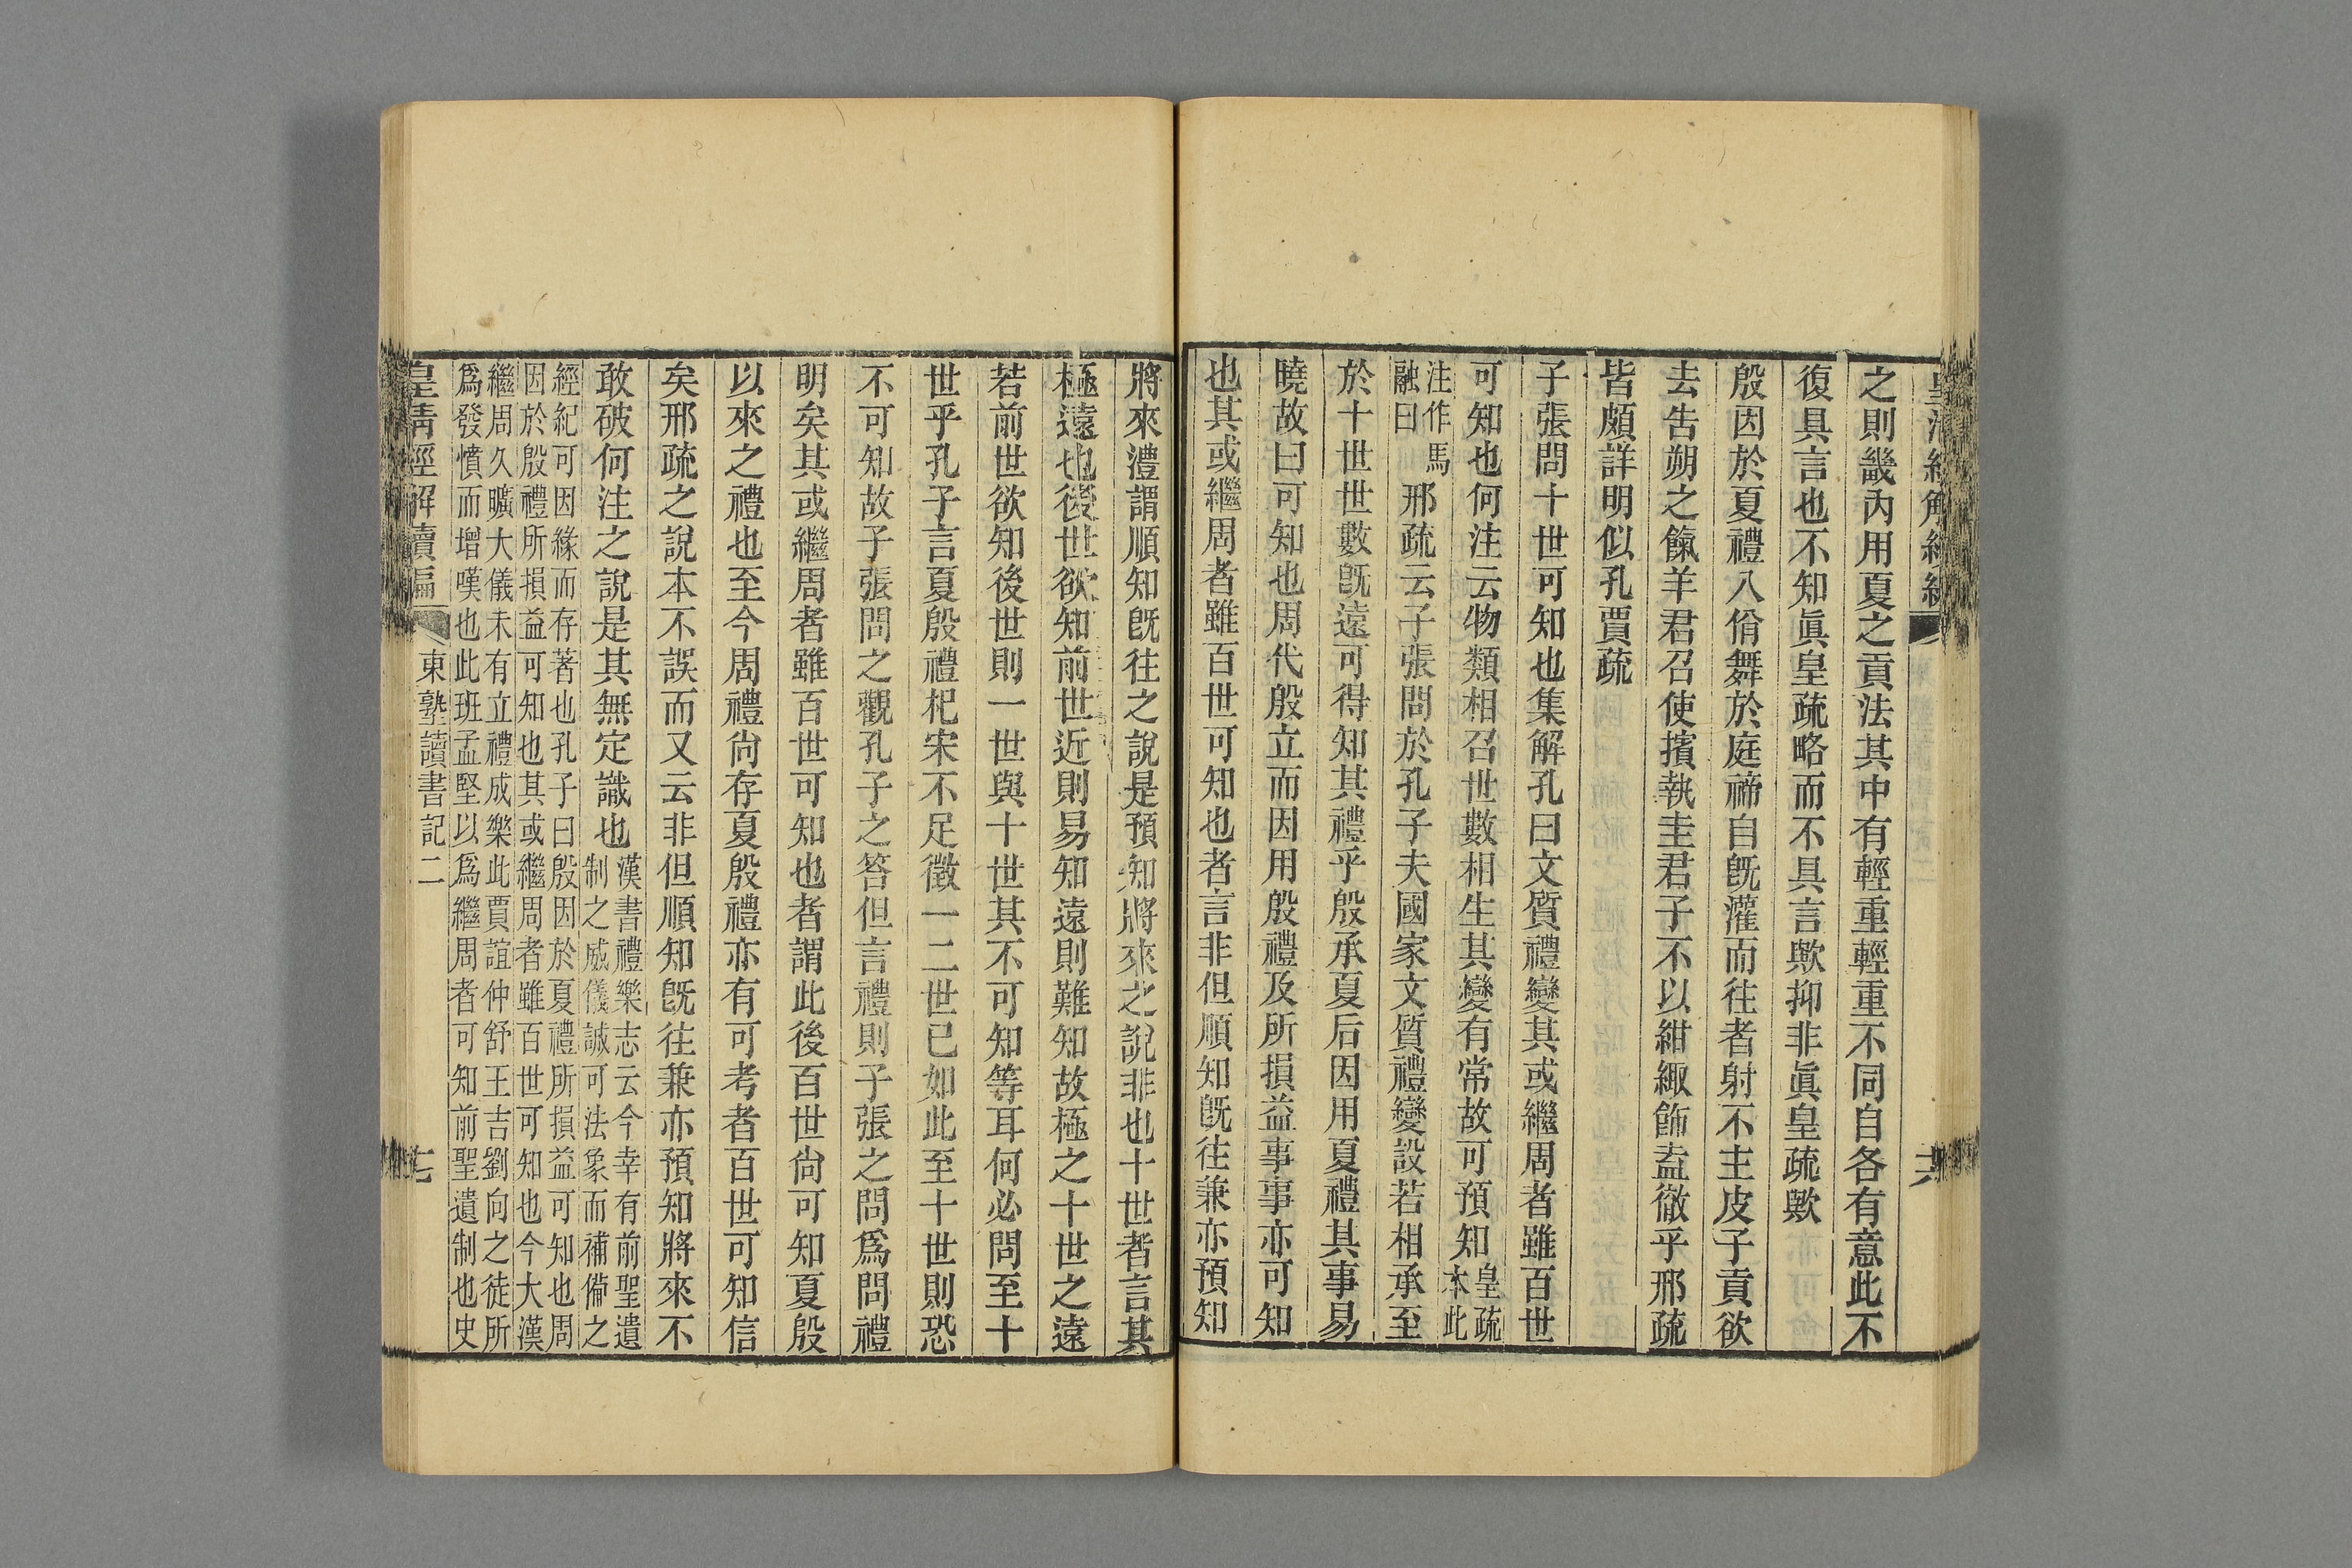 皇清經解續編
六
之則畿內用夏之貢法其中有輕重輕重不同自各有意此不
復具言也不知眞皇疏略而不具言歟抑非眞皇疏歟
殷因於夏禮八佾舞於庭禘自旣灌而往者射不主皮子貢欲
去告朔之餼羊君召使擯執圭君子不以紺緅飾盍徹乎邢疏
皆頗詳明似孔賈疏
子張問十世可知也集解孔曰文質禮變其或繼周者雖百世
可知也何注云物類相召世數相生其變有常故可預知皇疏本此
注作馬融曰邢疏云子張問於孔子夫國家文質禮變設若相承至
於十世世數旣遠可得知其禮乎殷承夏后因用夏禮其事易
曉故曰可知也周代殷立而因用殷禮及所損益事事亦可知
也其或繼周者雖百世可知也者言非但順知旣往兼亦預知
將來澧謂順知旣往之說是預知將來之說非也十世者言其
極遠也後世欲知前世近則易知遠則難知故極之十世之遠
若前世欲知後世則一世與十世其不可知等耳何必問至十
世乎孔子言夏殷禮杞宋不足徵一二世已如此至十世則恐
不可知故子張問之觀孔子之答但言禮則子張之問爲問禮
明矣其或繼周者雖百世可知也者謂此後百世尙可知夏殷
以來之禮也至今周禮尙存夏殷禮亦有可考者百世可知信
矣邢疏之說本不誤而又云非但順知旣往兼亦預知將來不
敢破何注之說是其無定識也漢書禮樂志云今幸有前聖遺制之威儀誠可法象而補備之
經紀可因緣而存著也孔子曰殷因於夏禮所損益可知也周因於殷禮所損益可知也其或繼周者雖百世可知也今大漢
繼周久曠大儀未有立禮成樂此賈誼仲舒王吉劉向之徒所爲發憤而增嘆也此班孟堅以爲繼周者可知前聖遺制也史
皇清經解續編
東塾讀書記二
七